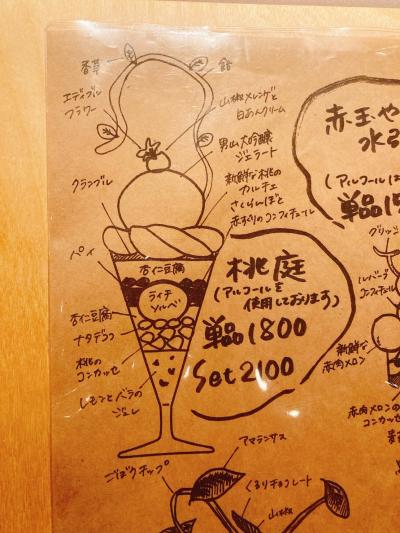 香草
飴
エディブル
フラワー
山椒メレンゲと
白あんクリーム
男山大吟醸
ジェラート
クランブル
新鮮な桃の
カルチェ
さくらんぼと
赤すぐりのコンフィチュール
パイ
杏仁豆腐
ライチ
ソルベ
杏仁豆腐
ナタデココ
桃の
コンカッセ
レモンとバラの
ジュレ
桃庭
(アルコールを
使用しております)
単品1800
Set2100
赤玉や
水引
(アルコールは
単品1
グリッシ
ルバーブ
コンフィチュ
新鮮な
赤肉メロン
赤肉メロンの
コンカッセ
アマランサス
ごぼうチップ
くるりチョコレート
山椒